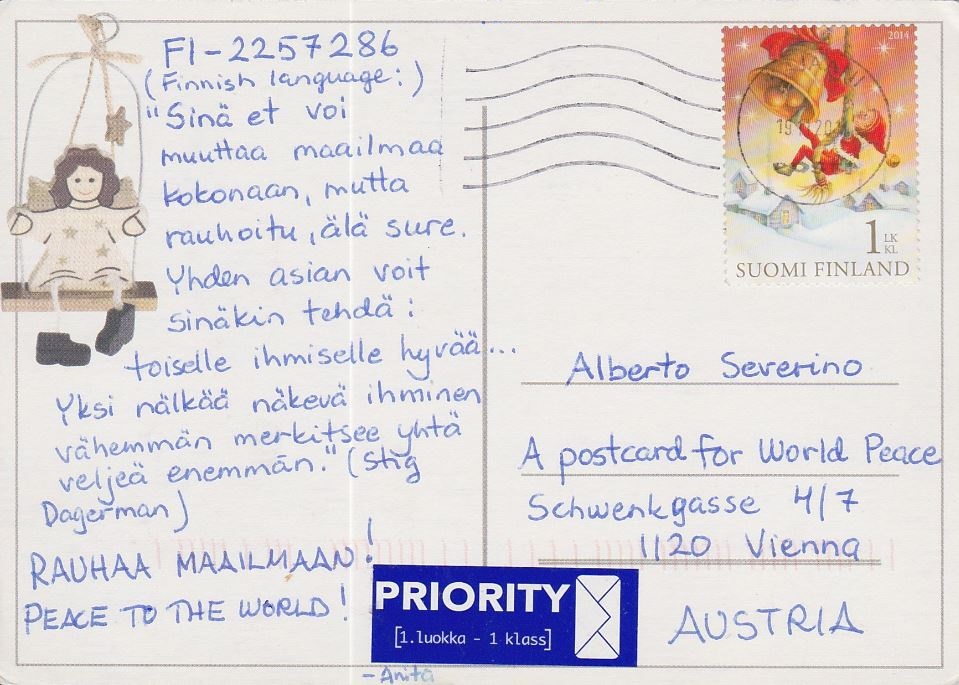 FI-2257286
(Finnish language:)
"Sinä et voi
muuttaa maailmaa
kokonaan, mutta
rauhoitu, älä sure.
Yhden asian voit
sinäkin tehdä:
toiselle ihmiselle hyvää...
Yksi nälkää näkevä ihminen
vähemmän merkitsee yhtä
veljeä enemmän." (Stig
Dagerman)
RAUHAA MAAILMAAN!
PEACE TO THE WORLD!
-Anita
PRIORITY
[1.luokka - 1 klass]
2014
1 LK
KL
SUOMI FINLAND
Alberto Severino
A postcard for World Peace
Schwenkgasse 4/7
1120 Vienna
AUSTRIA